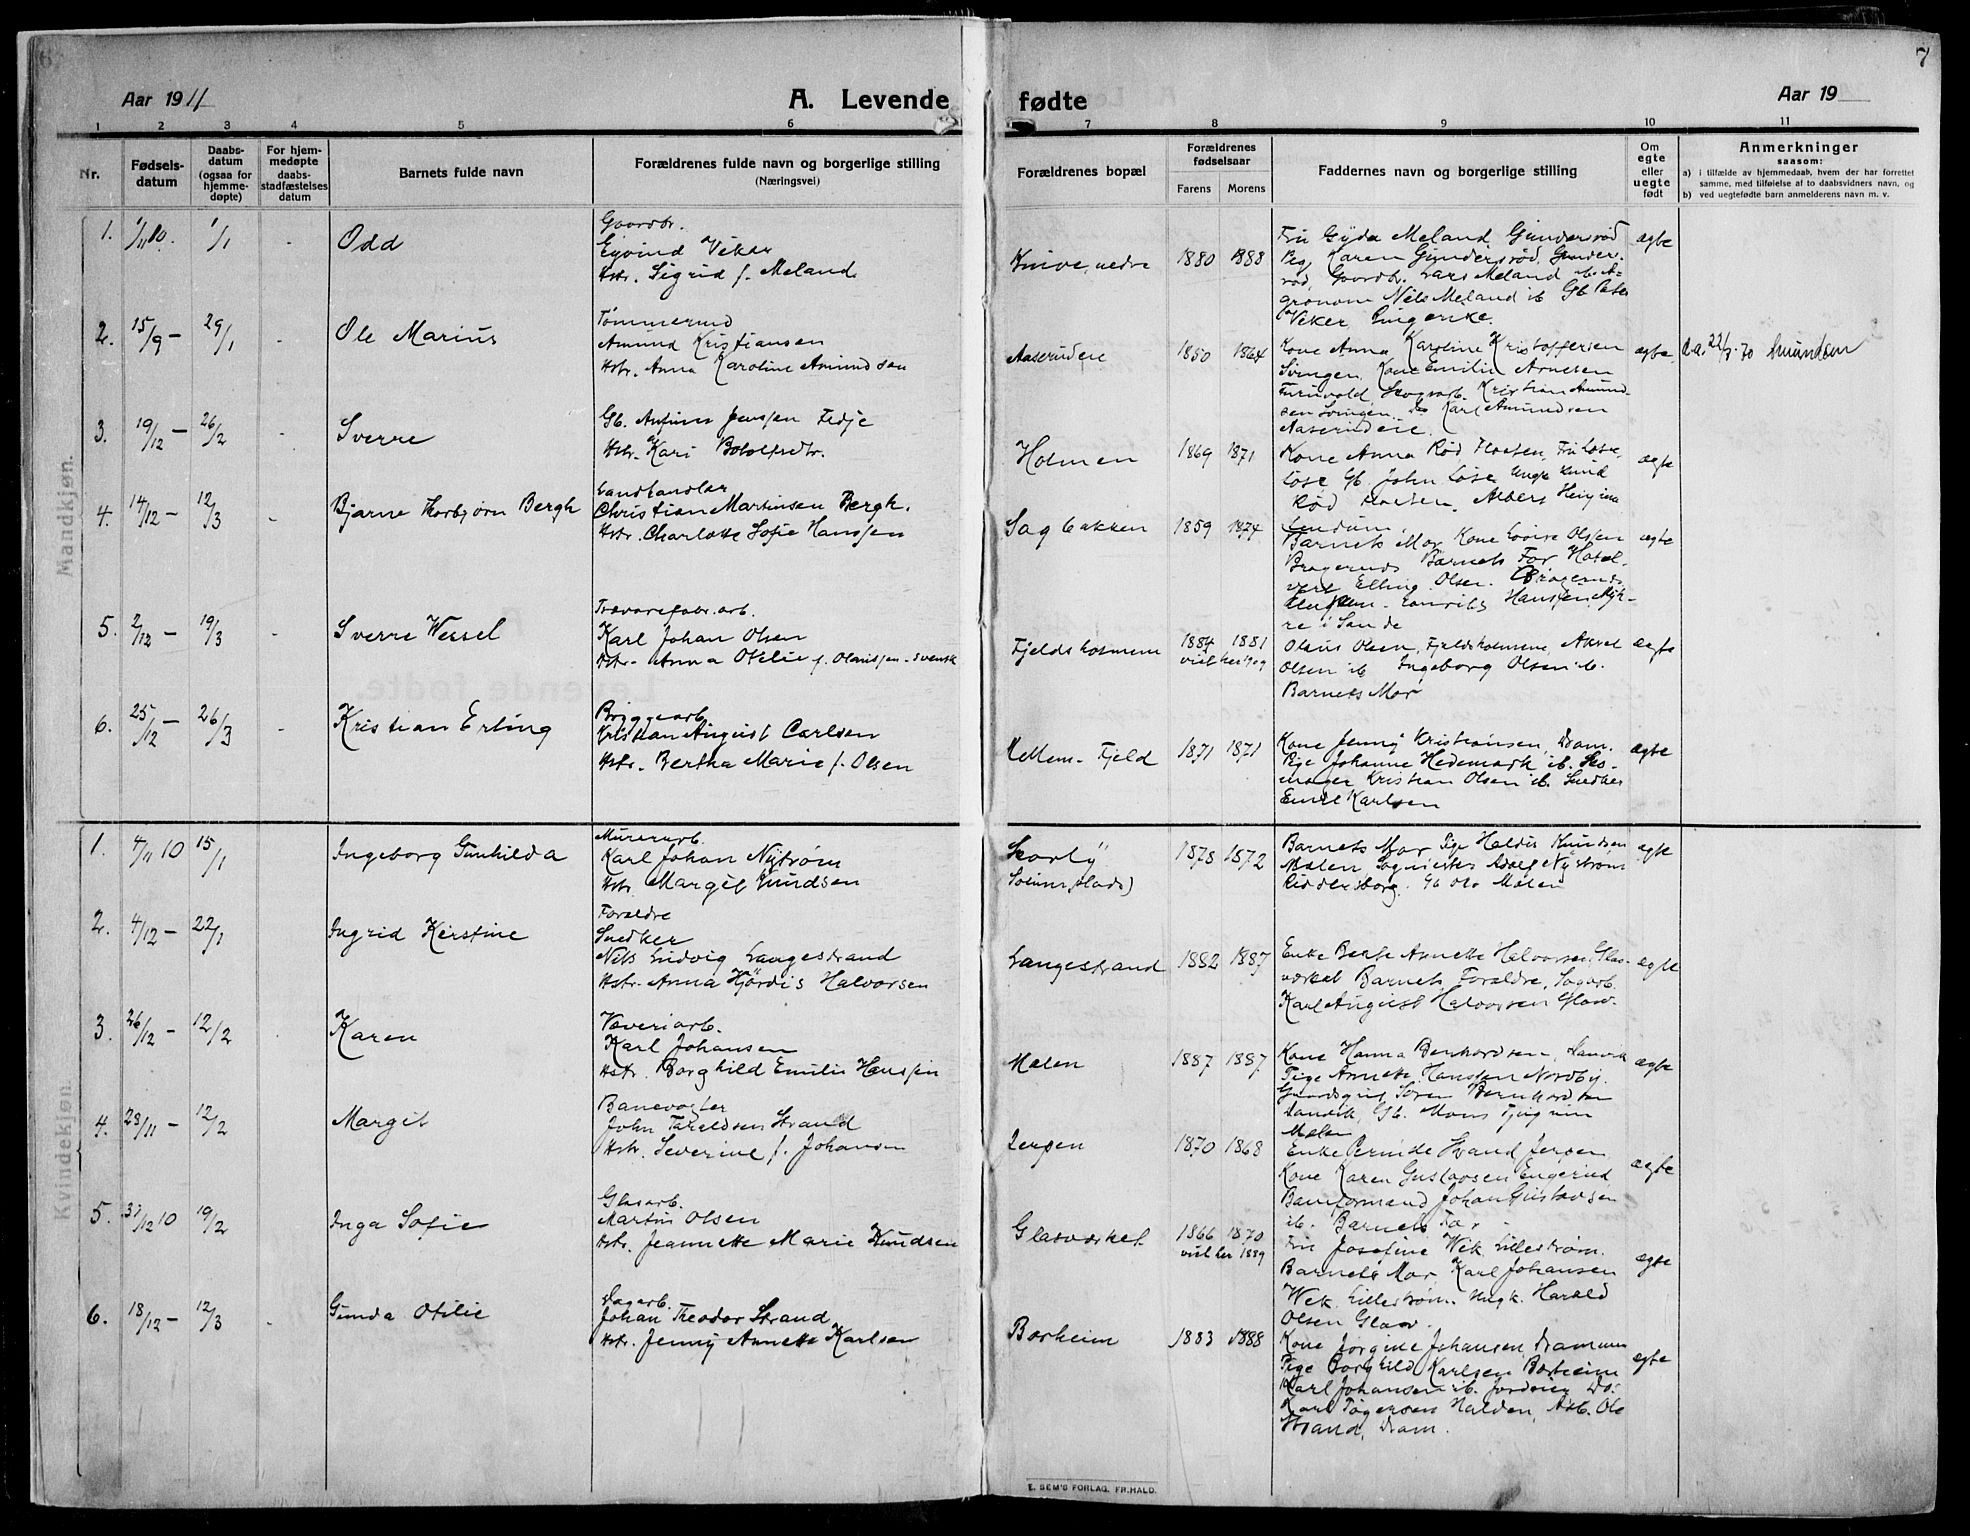 7
Aar 1911
A. Levende
fødte
Aar 19
1 2 3 4 5 6 7 8 9 10 11
Nr.
Fødsels-
datum
Daabs-
datum
(ogsaa for
hjemme-
døpte)
For hjem-
medøpte
daabs-
stadfæstelses
datum
Barnets fulde navn
Forældrenes fulde navn og borgerlige stilling
(Næringsvei)
Forældrenes bopæl
Forældrenes
fødselsaar
Farens Morens
Faddernes navn og borgerlige stilling
Om
egte
eller
uegte
født
Anmerkninger
saasom:
a) i tilfælde av hjemmedaab, hvem der har forrettet
samme, med tilføielse af to daabsvidners navn, og
b) ved uegtefødte barn anmelderens navn m. v.
Mandkjøn.
1. 1/11 10. 1/1 - Odd
Gaardbr.
Eyvind Veker
Hstr. Sigrid f. Meland
Knive, nedre 1880 1888
Fru Gyda Meland, Gundersrød
Pig. Karen Gundersrød, Gunders-
rød, Gaardbr. Lars Meland ib. A-
gronom Nils Meland ib Gb. Peter
Veker
ægte
2. 15/9 - 29/1 - Ole Marius
Tømmermand
Amund Kristiansen
Hstr. Anna Karoline Amundsen
Aaserudeie 1850 1864
Kone Anna Karoline Kristoffersen
Svingen, Kone Emilie Arnesen
Furuvold, Skogsarb. Kristian Amund-
sen Svingen, Do Karl Amundsen
Aaserudeie.
ægte
Amundsen
3. 19/12 - 26/2 - Sverre
Gb. Anfinn Jenssen Fedje
Hstr. Kari Botolfsdtr.
Holmen 1869 1871
Kone Anna Rød Floeten, Fru Løse,
Løse Gb. John Løse Ungk. Knud
Rød
ægte
4. 14/12 - 12/3 - Bjarne Thorbjørn Bergh
Landhandler
Christian Martinsen Bergh.
Hstr. Charlotte Sofie Hanssen
Sagbakken 1859 1874
Barnets Mor Kone Lovise Olsen
Bragernes Barnets Far Hotel-
vert Elling Olsen. Bragernes
Hanssen Myh-
re i Sande
ægte
5. 2/12 - 19/3 - Sverre Wessel
Trævarefabr. arb.
Karl Johan Olsen
Hstr. Anna Otilie f. Olaussen - svensk
Fjeldsholmene 1884 1881
viet her 1909
Olaus Olsen, Fjeldsholmene, Aksel
Olsen ib Ingeborg Olsen ib.
Barnets Mor
ægte
6. 25/12 - 26/3 - Kristian Erling
Bryggearb.
Kristian August Carlsen
Hstr. Bertha Marie f. Olsen
Mellem-Fjeld 1871 1871
Kone Jenny Kristiansen, Dram.
Pige Johanne Hedemark ib. Sko-
mager Kristian Olsen ib. Snedker
Emil Karlsen
ægte
Kvindekjøn.
1. 4/11 10 15/1 Ingeborg Gunhilda
Murerarb.
Karl Johan Nystrøm
Hstr Margit Knudsen
Skarly
1878 1872
Barnets Mor Pige Haldis Knudsen
Mælen, Sagmester Adolf Nystrøm
Riddersborg. Gb Ole Mælen
ægte
2. 4/12 - 22/1 Ingrid Kirstine
Forældre
Snedker
Nils Ludvig Langestrand
Hstr. Anna Hjördis Halvorsen
Langestrand 1882 1887
Enke Berte Annette Halvorsen Glas-
værket Barnets Forældre, Sagarb.
Karl August Halvorsen Glasv.
ægte
3. 26/12 - 12/2 Karen
Væveriarb.
Karl Johansen
Hstr. Borghild Emilie Hanssen
Mælen 1887 1887
Kone Hanna Bernhardsen, Sanvik
Pige Annette Hanssen Nordby.
Gaardsgut Søren Bernhardsen
Sandvik, Gb. Mons
Mælen
ægte
4. 28/11 - 12/2 Margit
Banevogter
John Taraldsen Strand
Hstr. Severine f. Johansen
Jerpen 1870 1868
Enke Pernude Strand Jerpen,
Kone Karen Gustavsen Engerud
Baneformand Johan Gustavsen
ib. Barnets Far
ægte
5. 31/12 10 19/2 Inga Sofie
Glasarb.
Martin Olsen
Hstr. Jeannette Marie Knudsen
Glasværket 1866 1870
viet her 1889
Fru Josefine Wek, Lillestrøm.
Barnets Mor, Karl Johansen
Wek, Lillestrøm. Ungk. Harald
Olsen Glasv.
ægte
6. 18/12 - 12/3 - Gunda Otilie
Dagarb.
Johan Theodor Strand
Hstr. Jenny Annette Karlsen
Borheim 1883 1888
Kone Jorgine Johansen, Drammen
Pige Borghild Karlsen Borheim
Karl Johansen ib.
Karl Tøgersen Halden, Arb. Ole
Strand, Dram.
ægte
E. SEM'S FORLAG. FR.HALD.